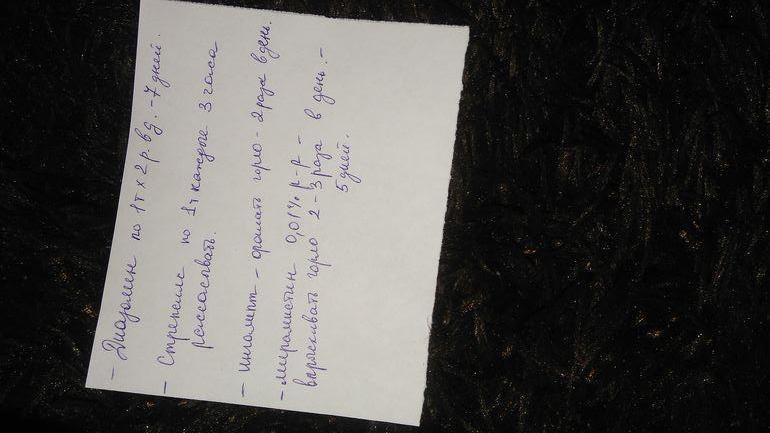 - Диазолин по 1т х 2 р. в д. - 7 дней.
- Стрепсилс по 1т каждые 3 часа
рассасывать.
- Ингалипт - орошать горло - 2 раза в день.
- Мирамистин 0,01% р-р -
впрыскивать горло 2-3 раза в день. -
5 дней.